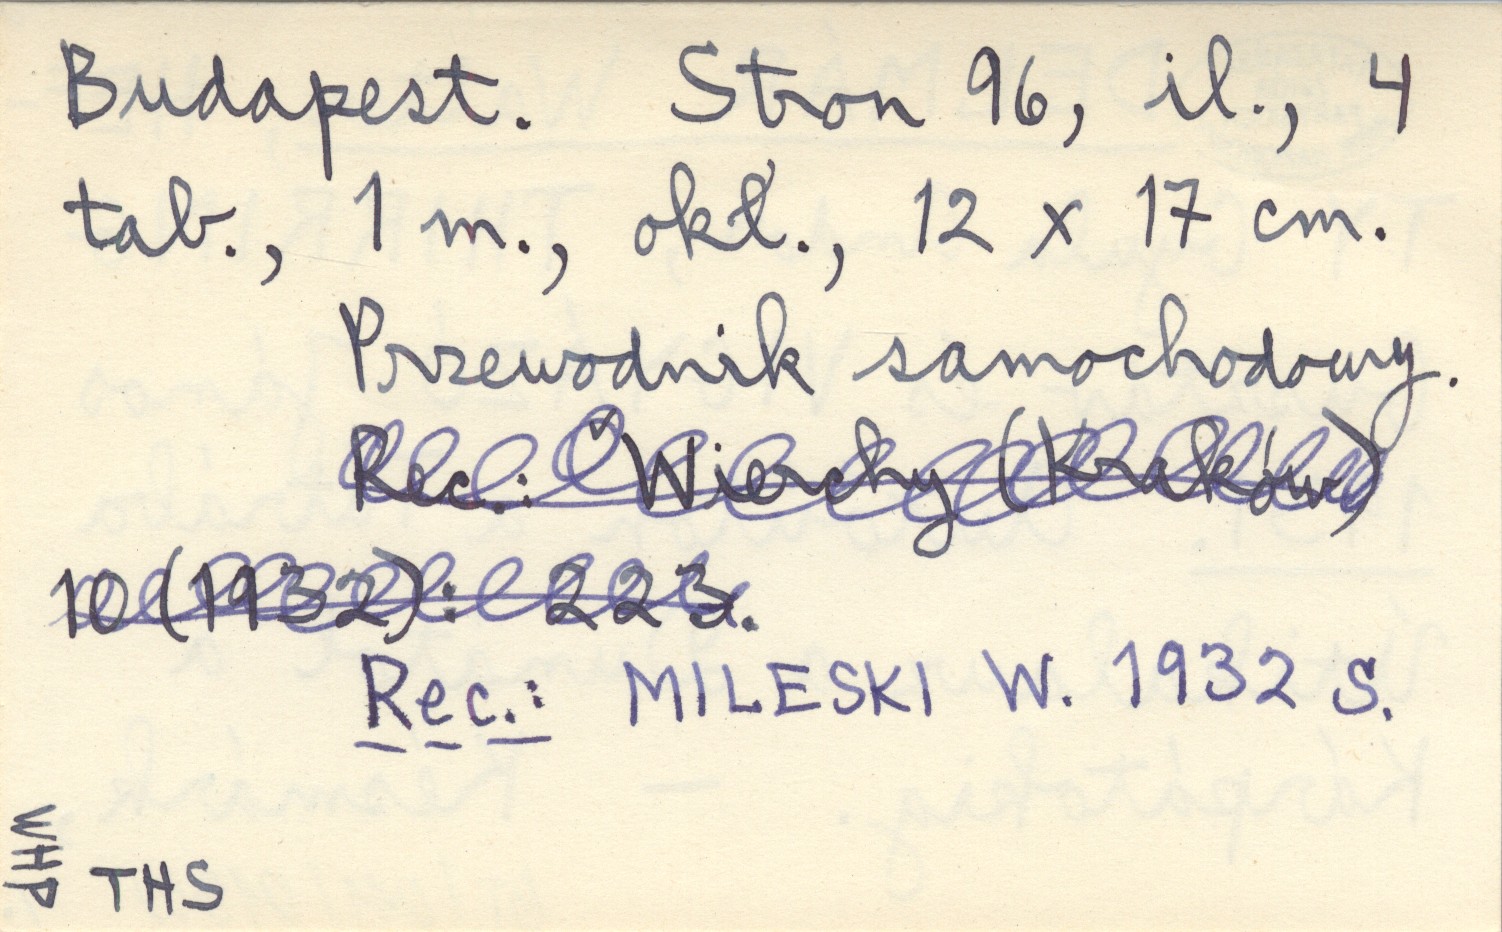 Budapest. Stron 96, il., 4
tab., 1 m., okł., 12 x 17 cm.
Przewodnik samochodowy.
Rec.: Wierchy (Kraków)
10 (1932): 223.
Rec.: MILESKI W. 1932 S.
WHP
THS